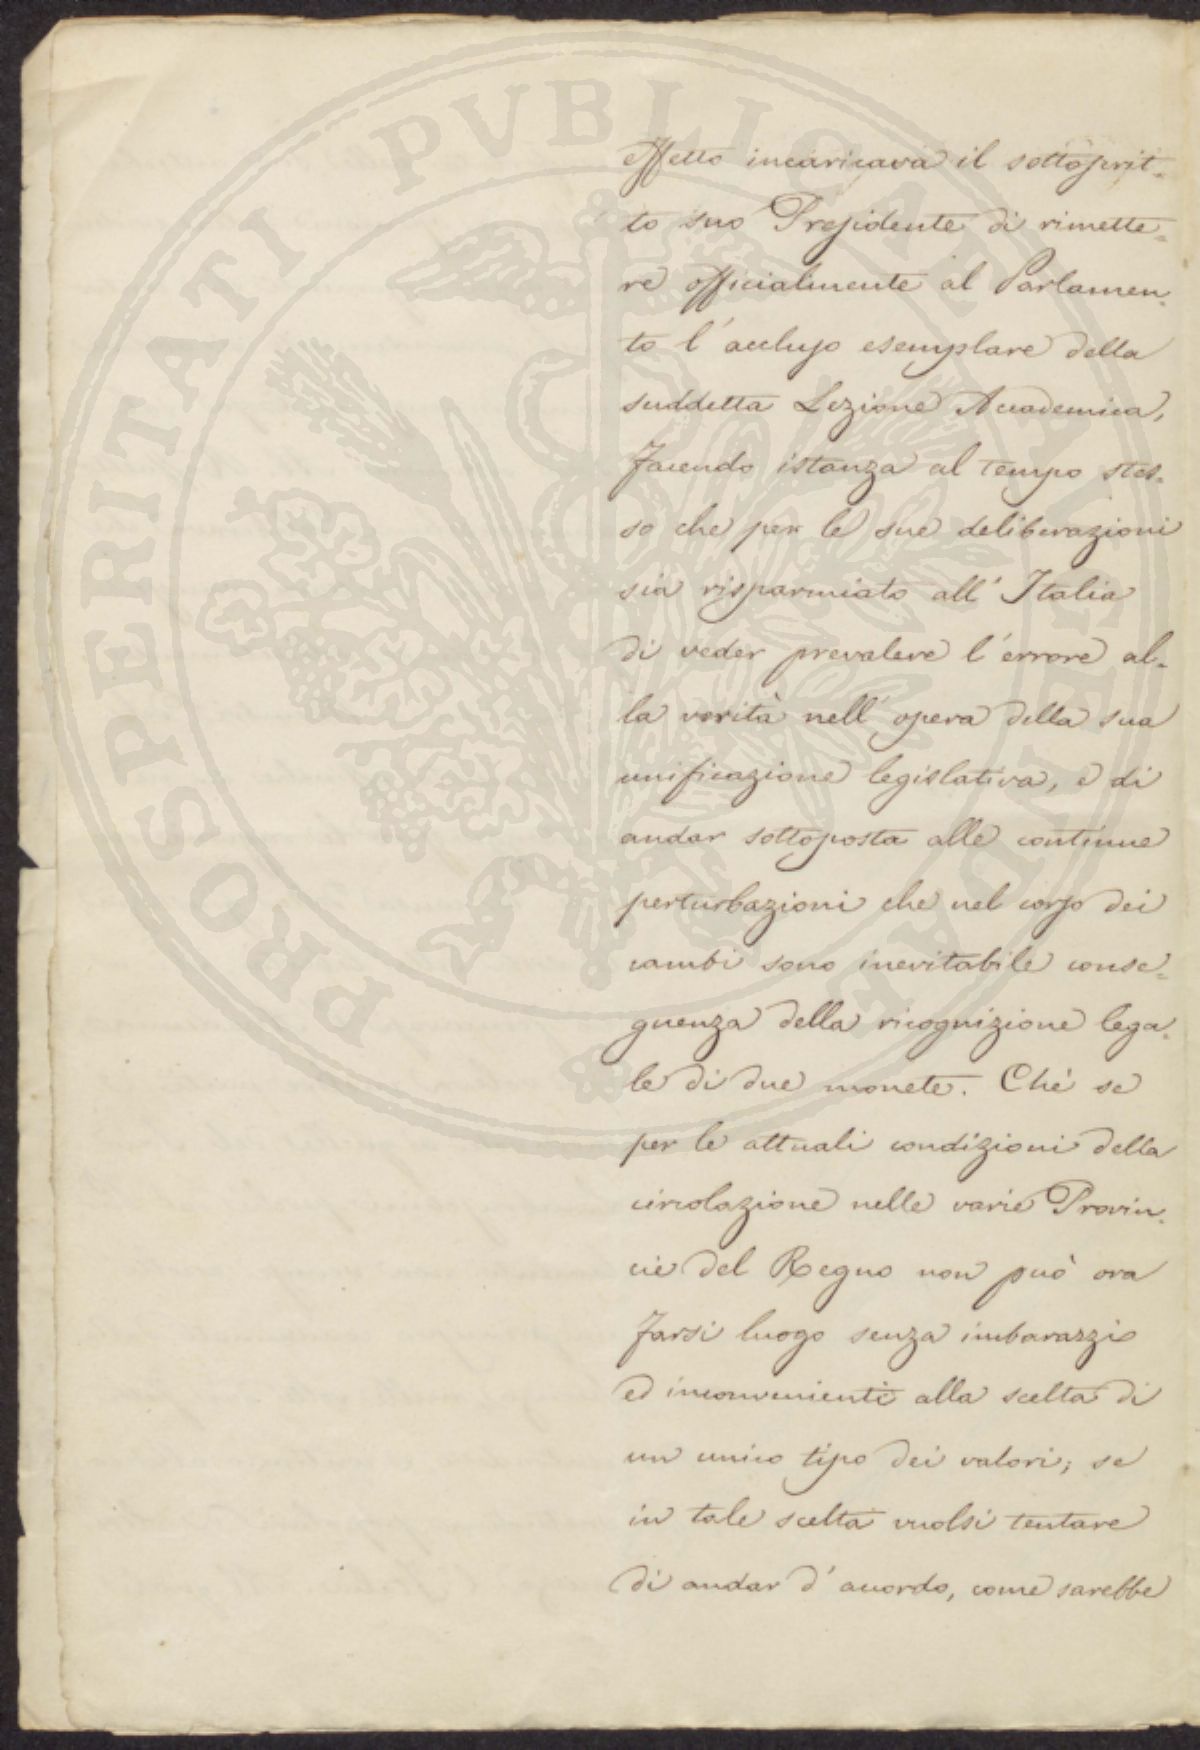 PROSPERITATI PVBLICAE AVGENDAE
effetto incaricava il sottoscrit-
to suo Presidente di rimette-
re officialmente al Parlamen-
to l'accluso esemplare della
suddetta Lezione Accademica,
facendo istanza al tempo stes-
so che per le sue deliberazioni
sia risparmiato all'Italia
di veder prevalere l'errore al-
la verità nell'opera della sua
unificazione legislativa, e di
andar sottoposta alle continue
perturbazioni che nel corso dei
cambi sono inevitabile conse-
guenza della ricognizione lega-
le di due monete. Chè se
per le attuali condizioni della
circolazione nelle varie Provin-
cie del Regno non può ora
farsi luogo senza imbarazzi
ed inconvenienti alla scelta di
un unico tipo dei valori; se
in tale scelta vuolsi tentare
di andar d'accordo, come sarebbe